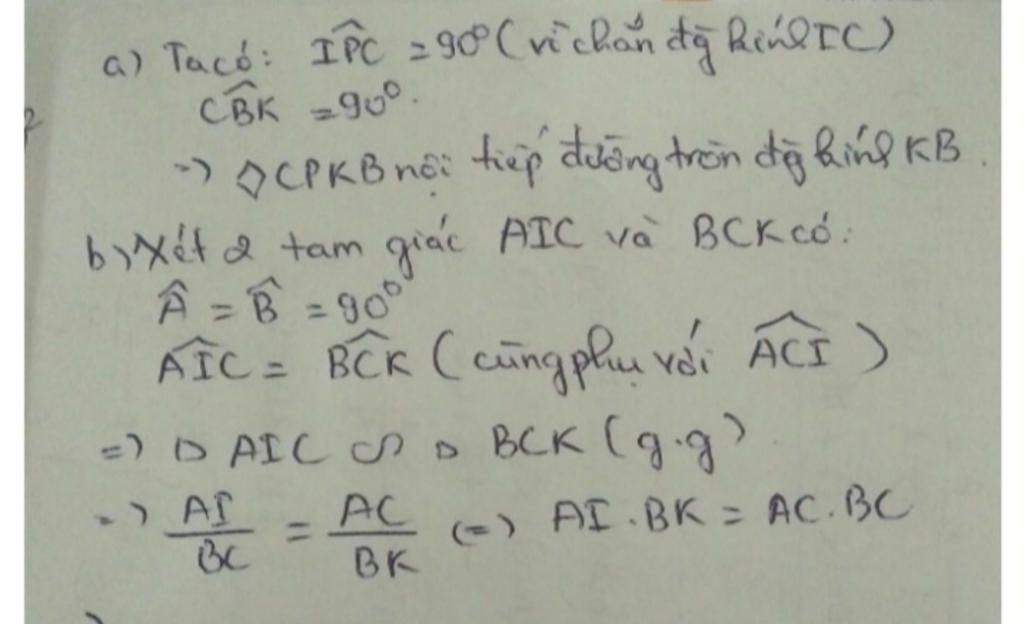 a) Ta có: IPC = 90° (vì chắn đg kính IC)
CBK = 90°.
=> ◇CPKB nội tiếp đường tròn đg kính KB.
b) Xét 2 tam giác AIC và BCK có:
Â = B̂ = 90°
AIC = BCK (cũng phụ với ACI)
=> △ AIC ∽ △ BCK (g.g)
=> AI/BC = AC/BK (=) AI.BK = AC.BC